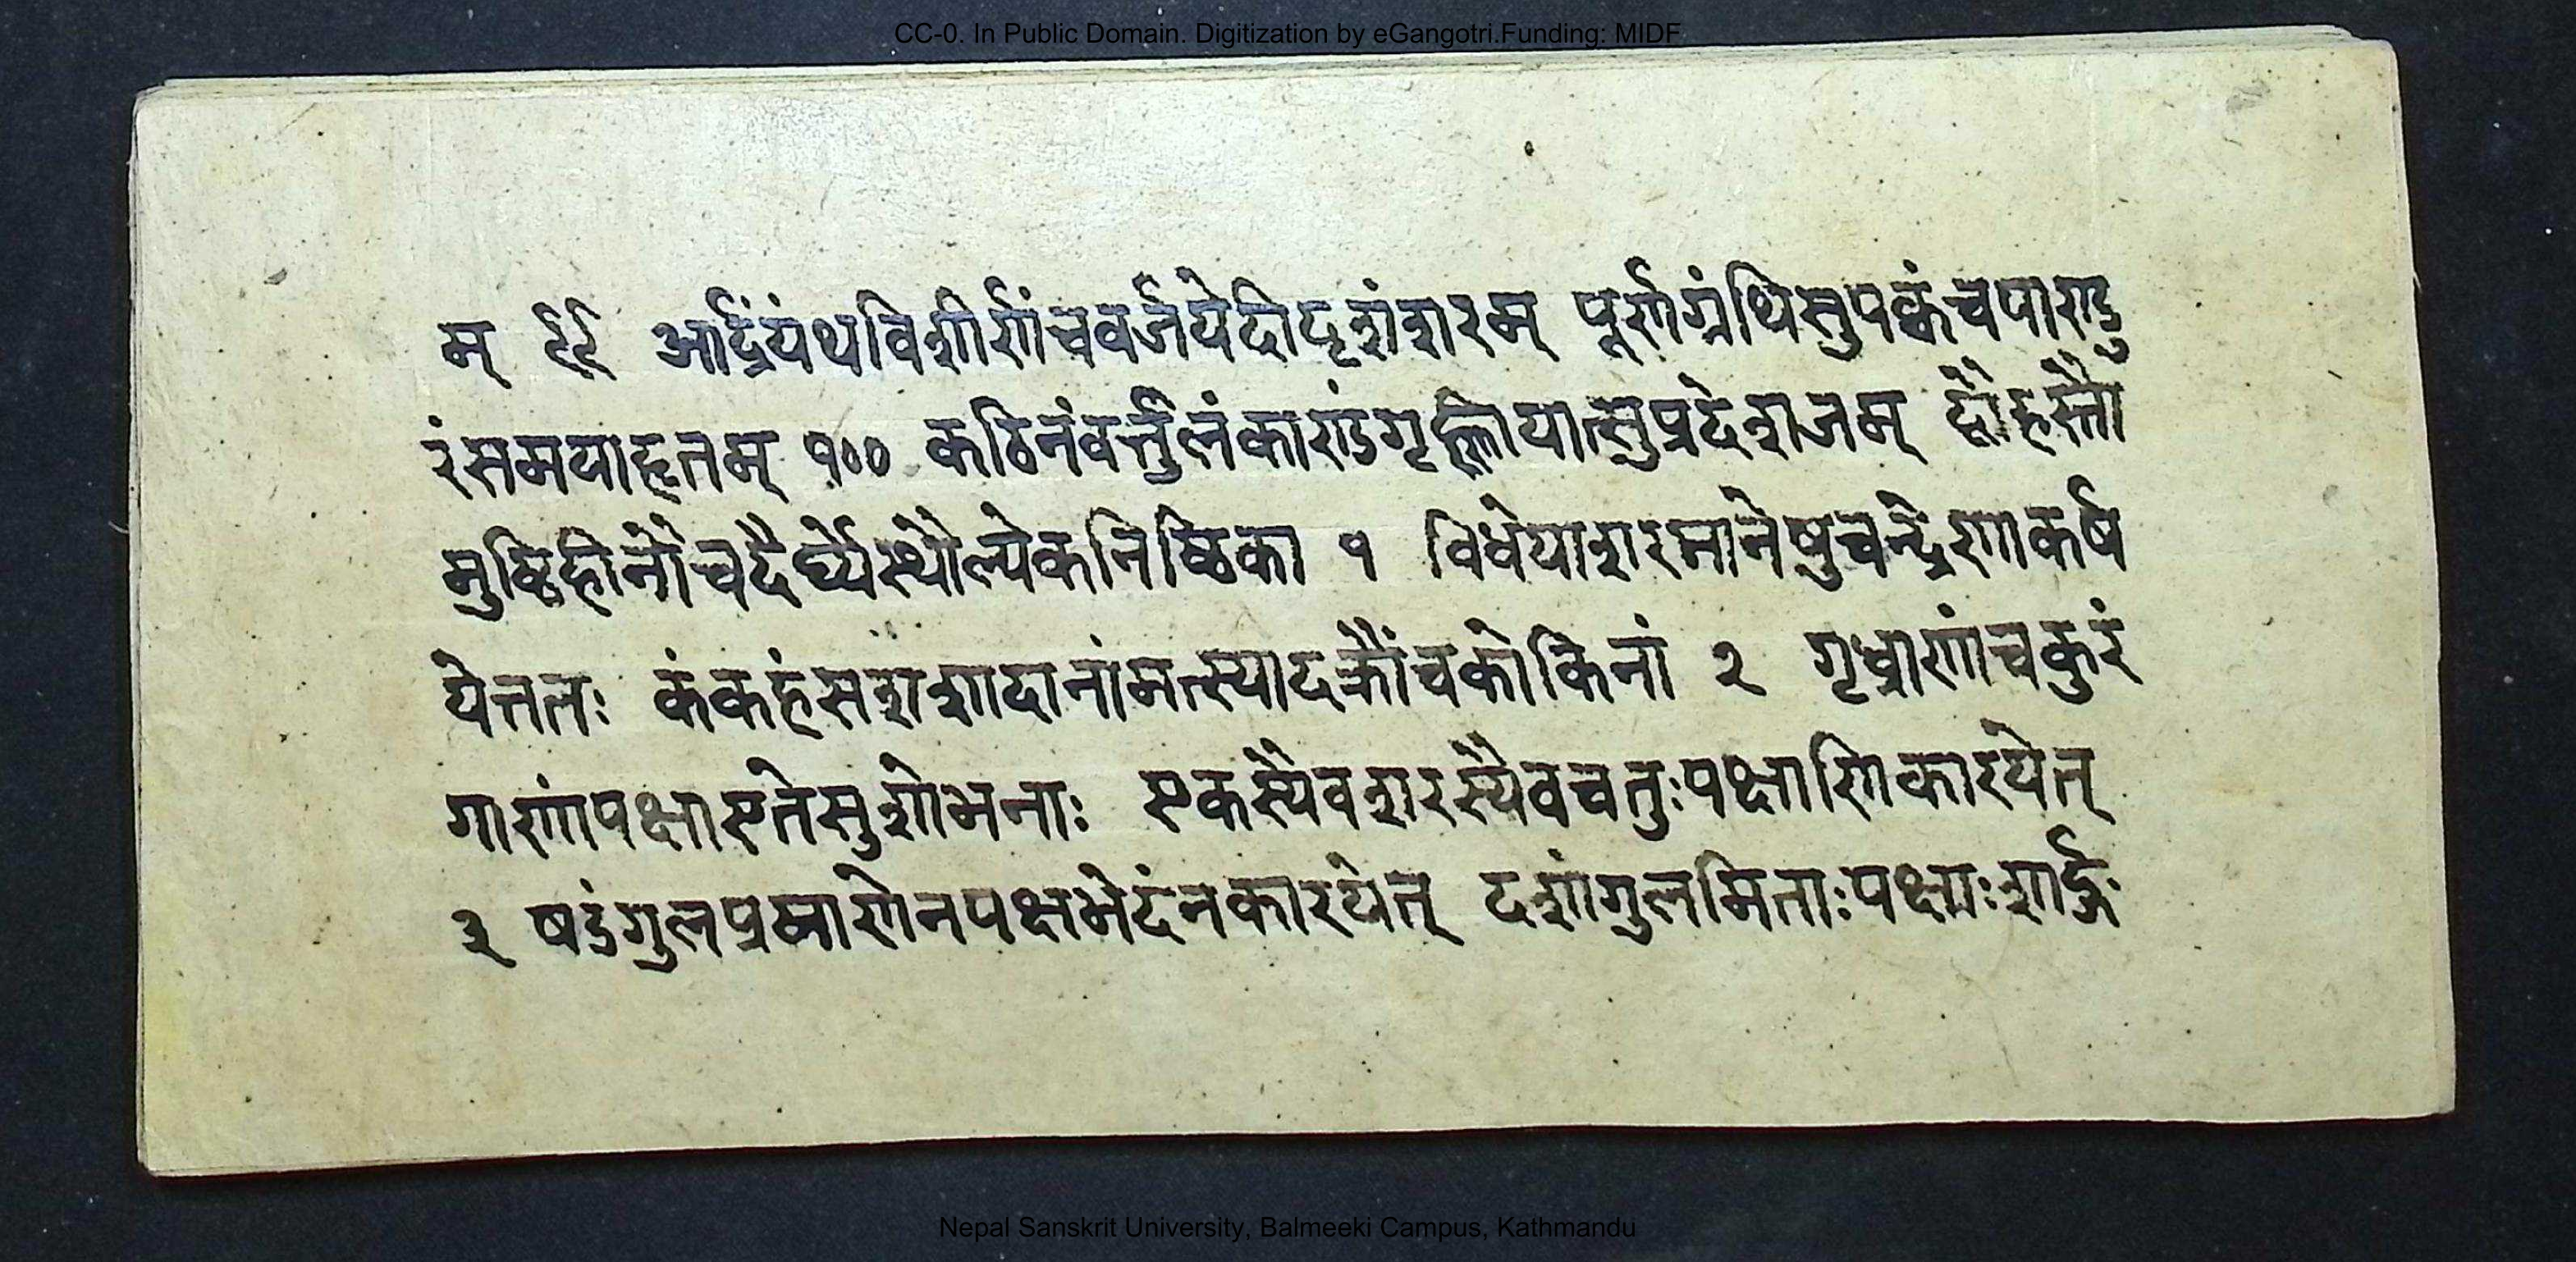 CC-0. In Public Domain. Digitization by eGangotri.Funding: MIDF
म् ९९ आर्द्रंयंथविशीर्णंचवर्जयेदीदृशंशरम् पूर्णग्रंथिसुपक्वंचपाण्डु
रंसमयाहृतम् १०० कठिनंवर्त्तुलंकाण्डंगृह्णीयात्सुप्रदेशजम् द्वौहस्तौ
मुष्टिहीनौचदैर्घ्येस्थौल्येकनिष्ठिका १ विधेयाशरमानेषुचन्द्रेणाकर्ष
येत्ततः कंकहंसशशादानांमत्स्यादक्रौंचकोकिनां २ गृध्राणांचकुरं
गाणांपक्षाएतेसुशोभनाः एकस्यैवशरस्यैवचतुःपक्षाणिकारयेत्
३ षडंगुलप्रमाणेनपक्षभेदंनकारयेत् दशांगुलमिताःपक्षाःशार्ङ्ग
Nepal Sanskrit University, Balmeeki Campus, Kathmandu